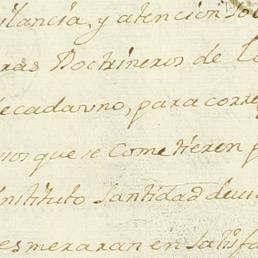 vilancia, y atencion so
ras Doctrineros de
decadauno, para corre
que se cometieren p
Instituto Santidad
esmeraran en satisfa